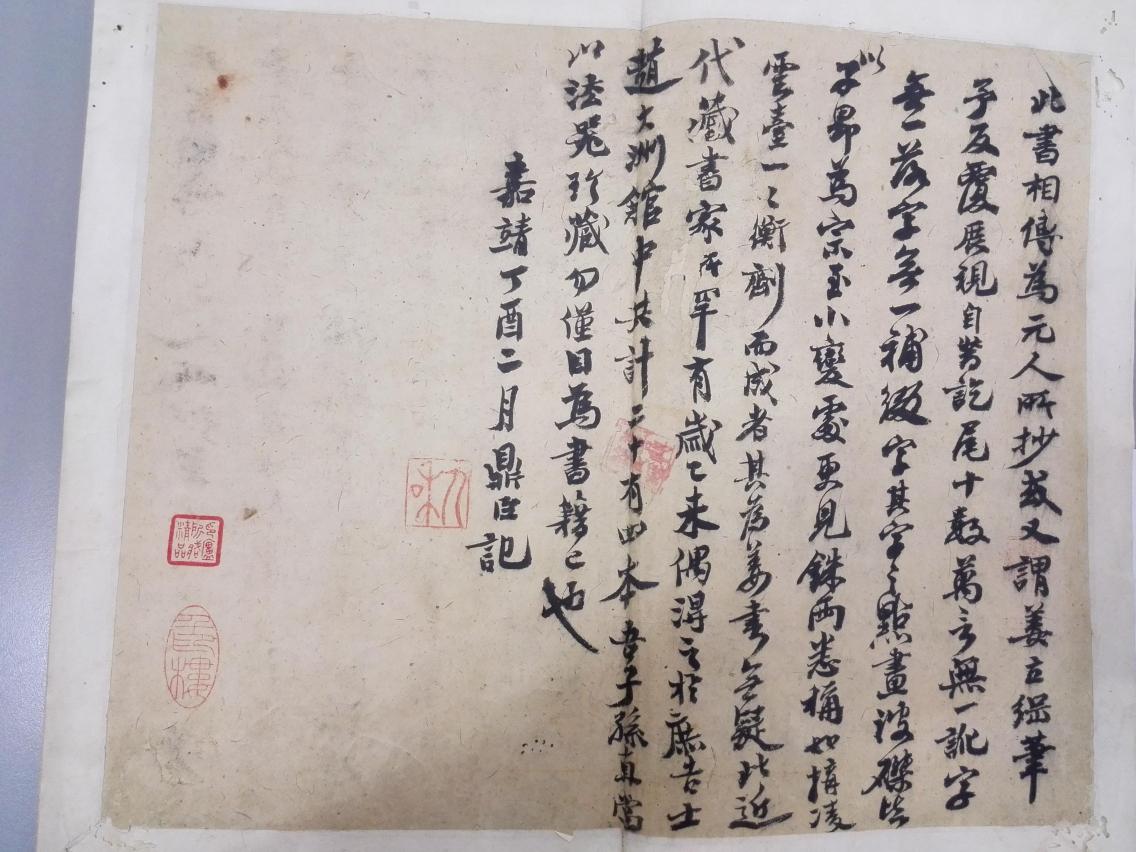 此書相傳為元人所抄或又謂姜立綱筆
予反覆展視自首訖尾十數萬言無一訛字
無一落字無一補綴字其字々點畫波磔皆
以子昂為宗至小變處更見銖兩悉稱如搆凌
雲臺一々衡劑而成者其為姜書無疑此近
代藏書家所罕有歲乙未偶得之於庶吉士
趙大洲館中共計二十有四本吾子孫直當
以法器珍藏勿僅目為書籍已也
嘉靖丁酉二月鼎臣記